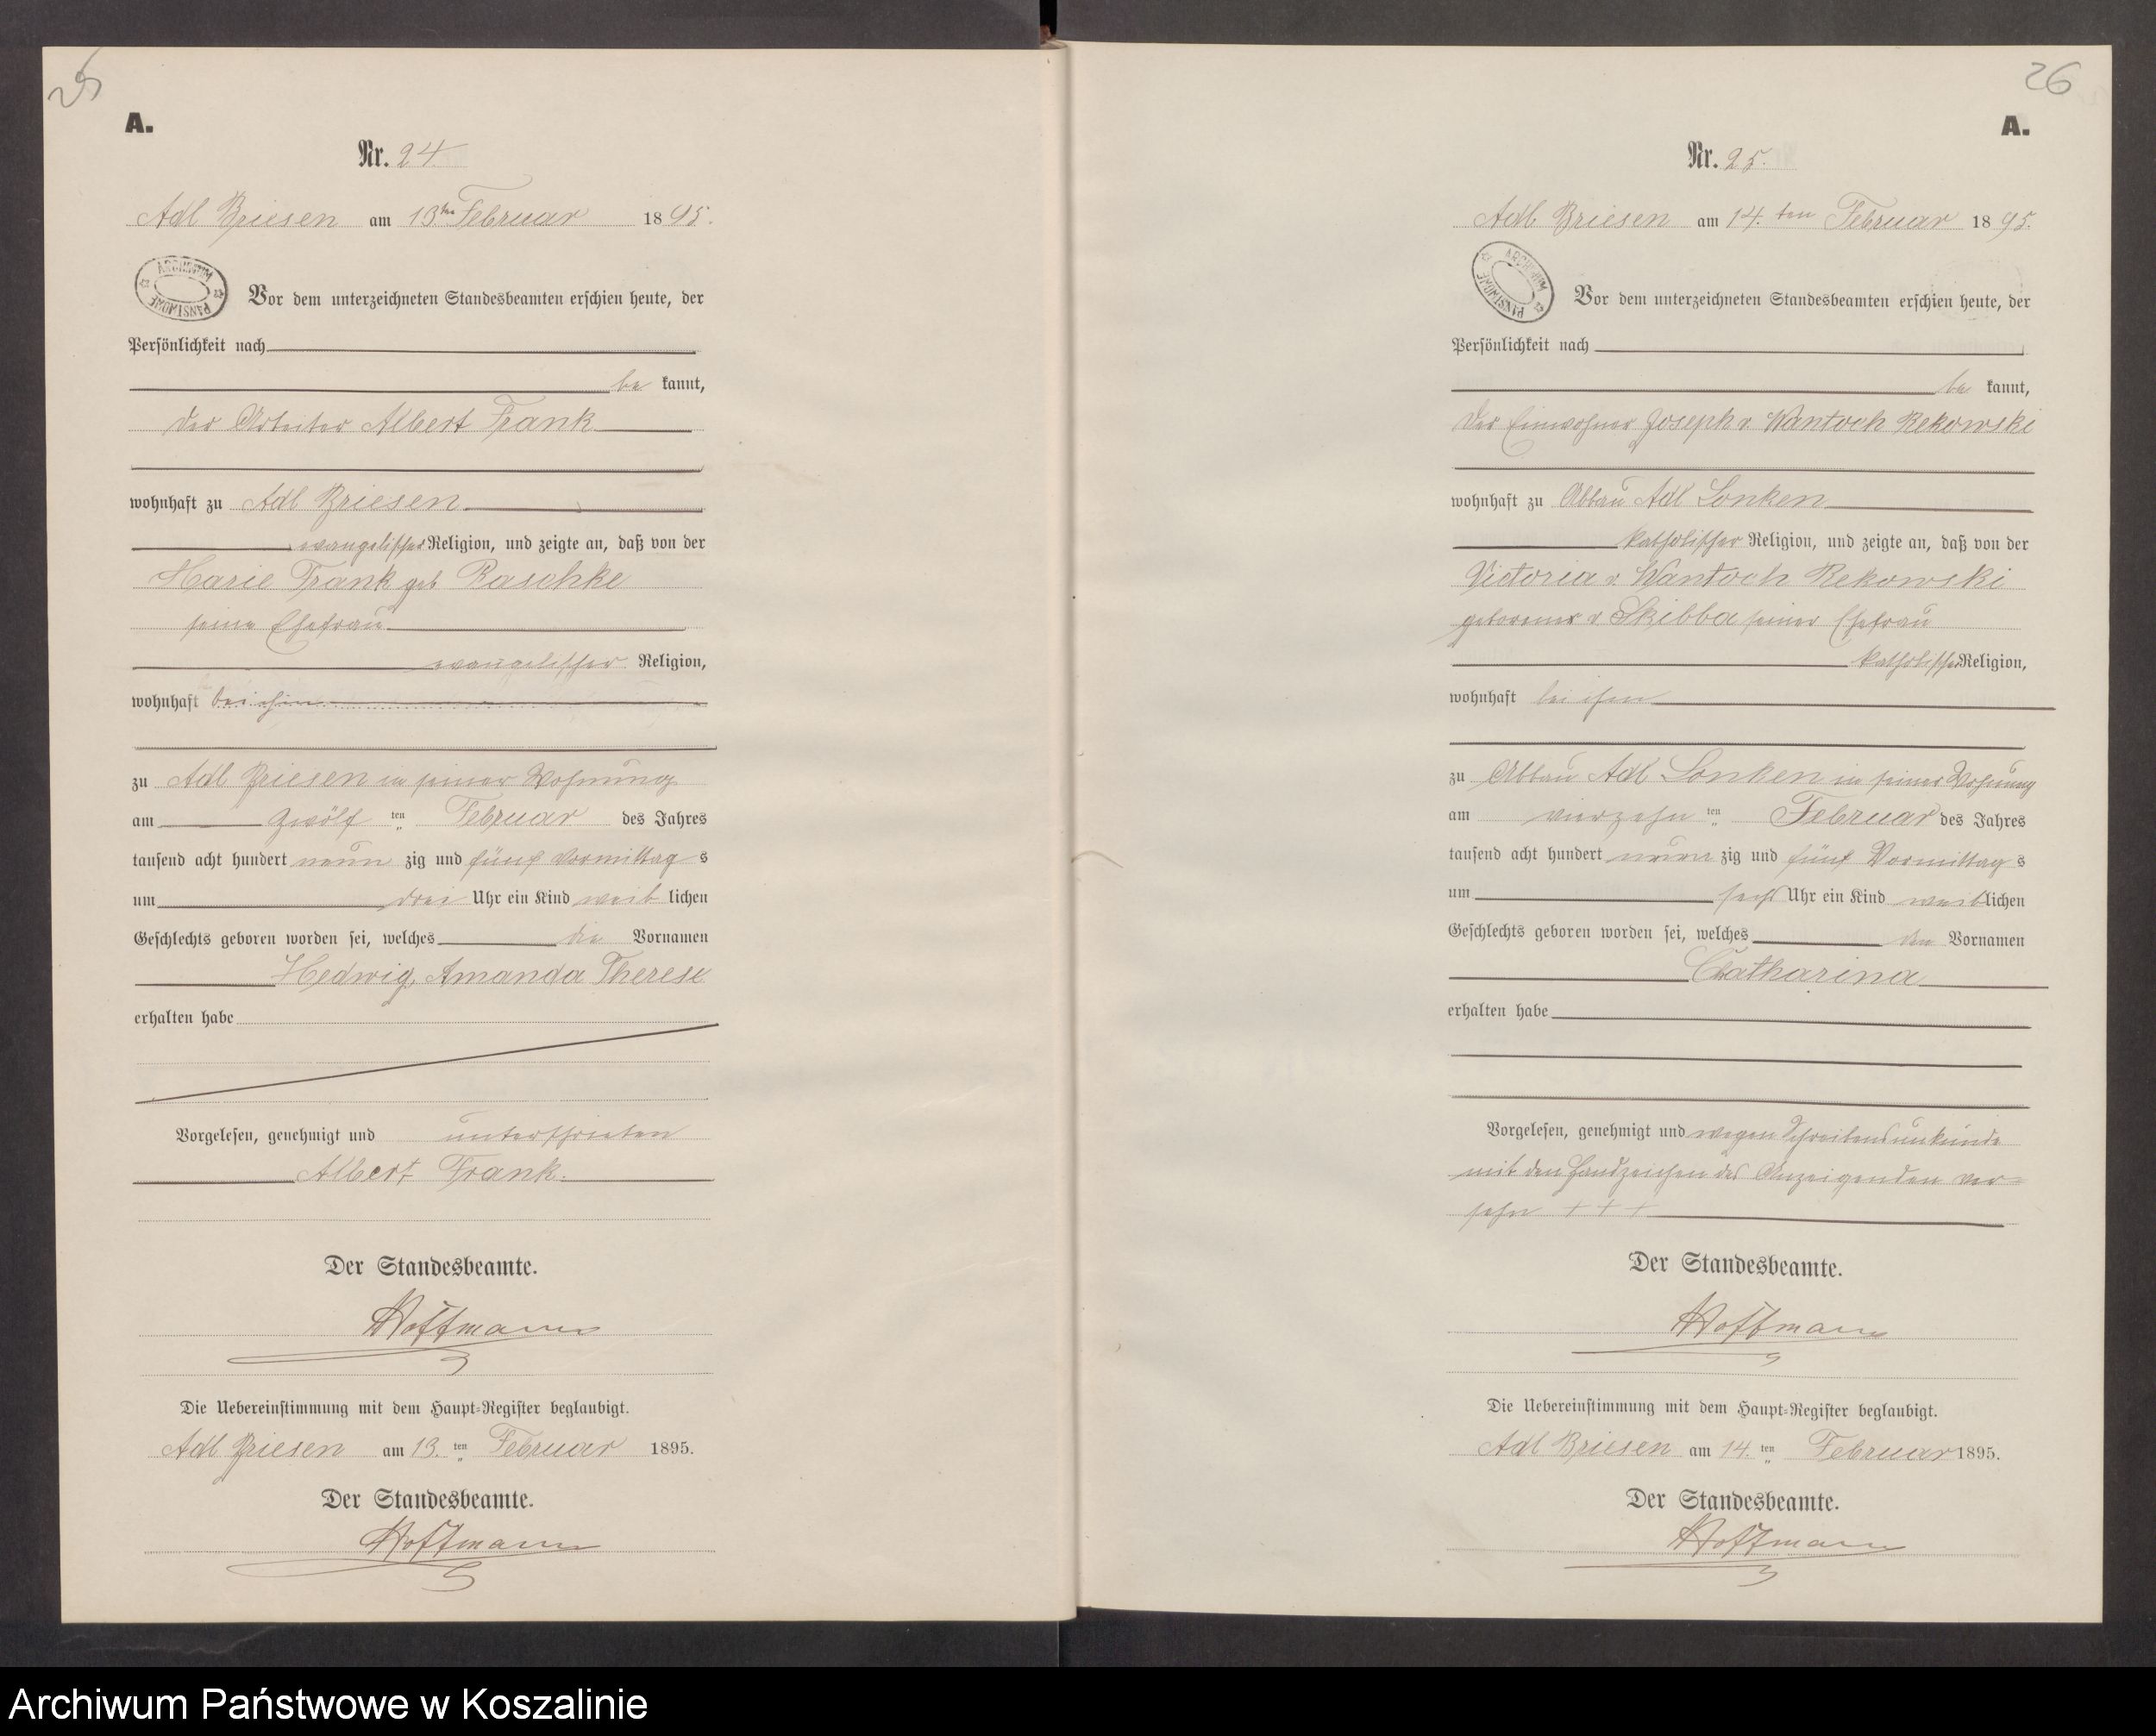 25
A.
Nr. 24.
Adl Briesen am 13ten Februar 1895.
ARCHIWUM PAŃSTWOWE
Vor dem unterzeichneten Standesbeamten erschien heute, der
Persönlichkeit nach
be kannt,
der Arbeiter Albert Frank
wohnhaft zu Adl Briesen
evangelischer Religion, und zeigte an, daß von der
Marie Frank geb Raschke
seine Ehefrau
evangelischer Religion,
wohnhaft bei ihm
zu Adl Briesen in seiner Wohnung
am zwölf ten Februar des Jahres
tausend acht hundert neun zig und fünf Vormittag s
um drei Uhr ein Kind weib lichen
Geschlechts geboren worden sei, welches die Vornamen
Hedwig, Amanda Therese
erhalten habe
Vorgelesen, genehmigt und unterschrieben
Albert Frank.
Der Standesbeamte.
Hoffmann
Die Uebereinstimmung mit dem Haupt-Register beglaubigt.
Adl Briesen am 13. ten Februar 1895.
Der Standesbeamte.
Hoffmann
26
A.
Nr. 25.
Adl Briesen am 14. ten Februar 1895.
ARCHIWUM PAŃSTWOWE
Vor dem unterzeichneten Standesbeamten erschien heute, der
Persönlichkeit nach
be kannt,
der Einwohner Joseph v. Wantoch Rekowski
wohnhaft zu Abbau Adl Lonken
katholischer Religion, und zeigte an, daß von der
Victoria v. Wantoch Rekowski
geborener v Skibba seiner Ehefrau
katholischer Religion,
wohnhaft bei ihm
zu Abbau Adl Lonken in seiner Wohnung
am vierzehn ten Februar des Jahres
tausend acht hundert neun zig und fünf Vormittag s
um sechs Uhr ein Kind weiblichen
Geschlechts geboren worden sei, welches den Vornamen
Catharina
erhalten habe
Vorgelesen, genehmigt und wegen Schreibensunkunde
mit den Handzeichen des Anzeigenden ver=
sehn + + +
Der Standesbeamte.
Hoffmann
Die Uebereinstimmung mit dem Haupt-Register beglaubigt.
Adl Briesen am 14. ten Februar 1895.
Der Standesbeamte.
Hoffmann
Archiwum Państwowe w Koszalinie